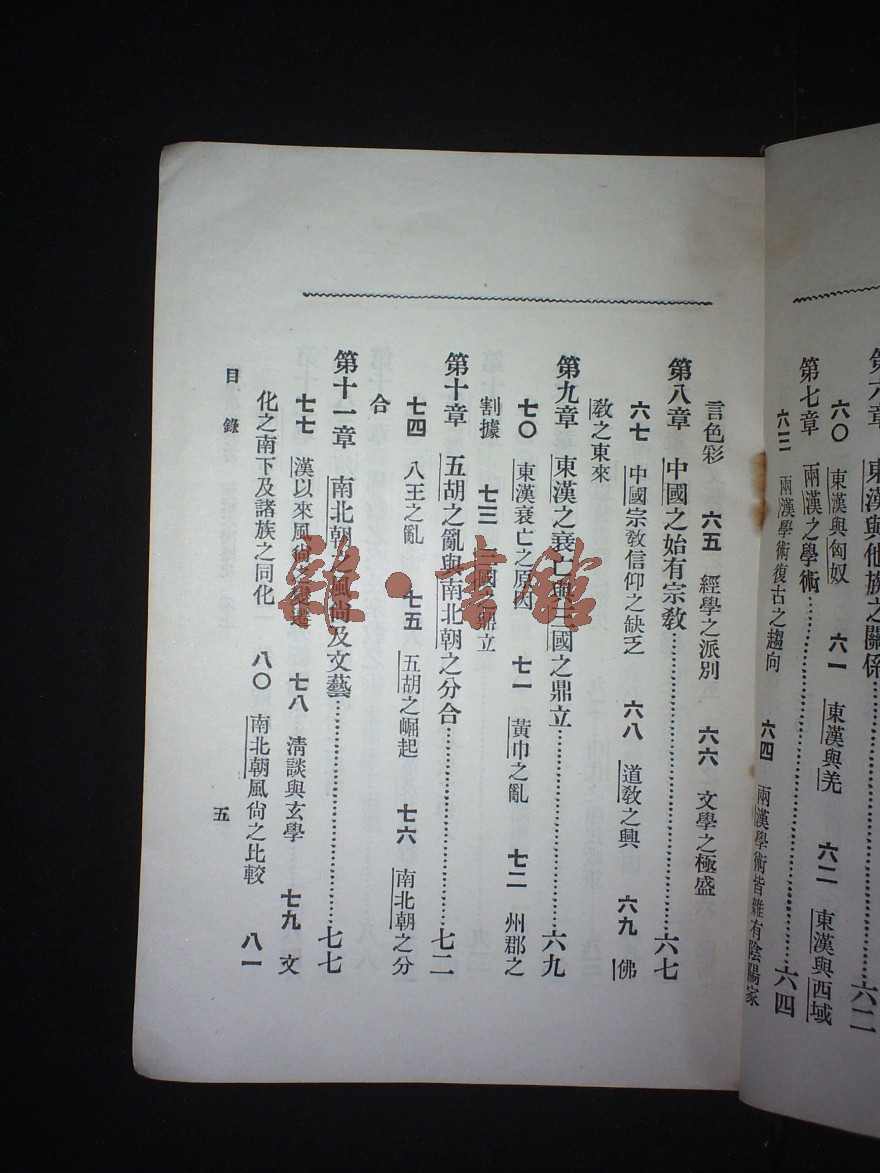 第六章　東漢與他族之關係……六二
六〇　東漢與匈奴　六一　東漢與羌　六二　東漢與西域
第七章　兩漢之學術……六四
六三　兩漢學術復古之趨向　六四　兩漢學術皆雜有陰陽家
言色彩　六五　經學之派別　六六　文學之極盛
第八章　中國之始有宗教……六七
六七　中國宗教信仰之缺乏　六八　道教之興　六九　佛
教之東來
第九章　東漢之衰亡與三國之鼎立……六九
七〇　東漢衰亡之原因　七一　黃巾之亂　七二　州郡之
割據　七三　三國之鼎立
第十章　五胡之亂與南北朝之分合……七二
七四　八王之亂　七五　五胡之崛起　七六　南北朝之分
合
第十一章　南北朝之風尚及文藝……七七
七七　漢以來風尚之變遷　七八　清談與玄學　七九　文
化之南下及諸族之同化　八〇　南北朝風尚之比較　八一
目錄　五
雜·書館